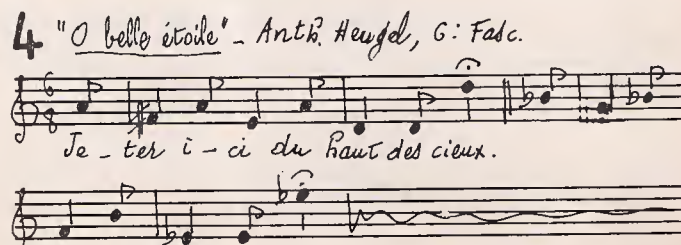 4 "O belle étoile" - Anth. Heugel, 6: Fasc.
6
8
Je - ter i - ci du haut des cieux.